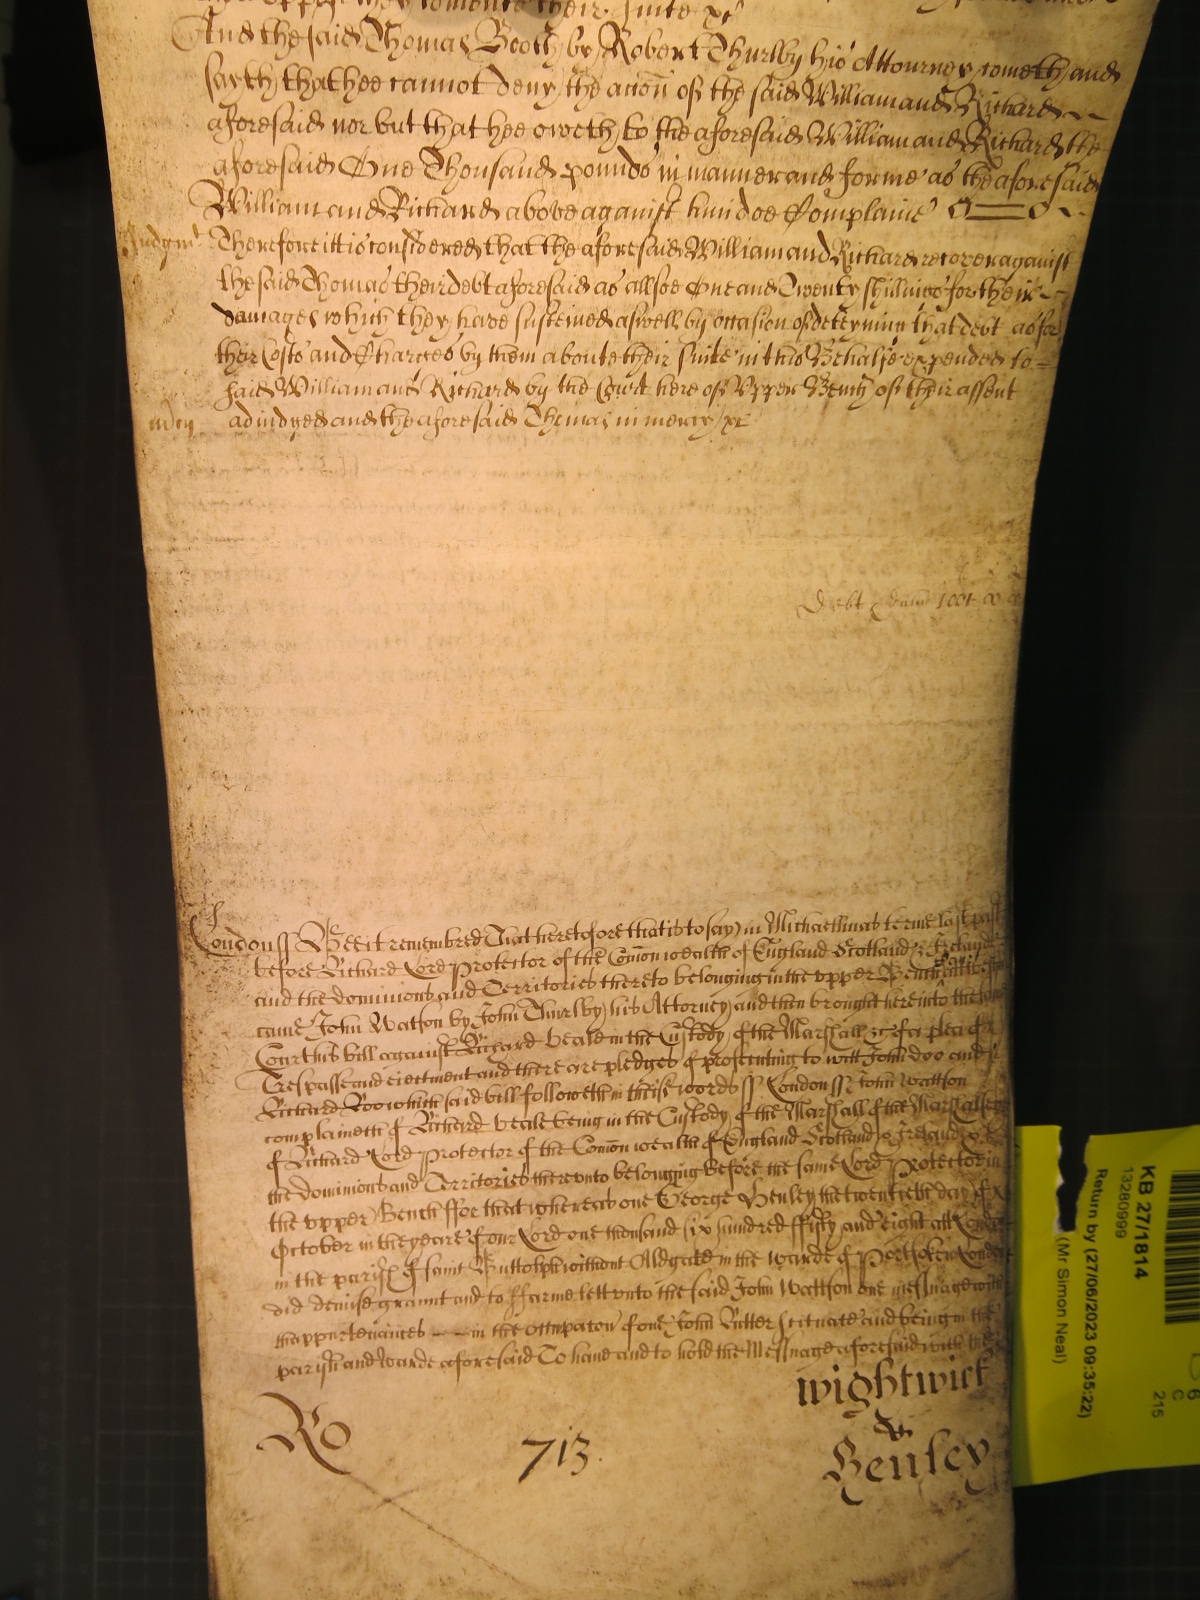 they comence their suite &c
And the said Thomas Booth by Robert Thurlby his Attourney cometh and
sayth that hee cannot deny the accon of the said William and Richard
aforesaid nor but that hee oweth to the aforesaid William and Richard the
aforesaid One Thousand pounds in manner and forme as the aforesaid
William and Richard above against him doe Complaine
Judgmt Therefore itt is considered that the aforesaid William and Richard recover against
the said Thomas their debt aforesaid as allsoe One and Twenty shillings for their
damages which they have susteined aswell by occasion of deteyning that debt as for
their Costs and Charges by them aboute their suite in this Behalfe expended to
said William and Richard by the Court here of Upper Bench of their assent
mcy adiudged and the aforesaid Thomas in mercy &c
Debt & dam 1001
London ss Bee it remembred That heretofore that is to say in Michaellmas terme last past
before Richard Lord Protector of the Comon wealth of England Scotland & Ireland
and the dominions and Territories thereto belonging in the upper Bench
came John Watson by John Thurlby his Attorney and then brought here into the
Court his bill against Richard Veale in the Custody of the Marshall &c of a plea of
Trespasse and eiectment and there are pledges of prosecuting to witt John doo and
Richard Roo which said bill followeth in theise words ss London ss John Wattson
complaineth of Richard Veale being in the Custody of the Marshall of the Marshallsea
of Richard Lord Protector of the Comon wealth of England Scotland & Ireland &
the dominions and Territories thereunto belonging before the same Lord Protector in
the upper Bench ffor that whereas one George Henley the twentieth day of
October in the yeare of our Lord one thousand six hundred ffifty and eight att London
in the parish of saint Buttolph without Aldgate in the warde of Portsoken London
did demise graunt and to ffarme lett unto the said John Wattson one messuage with
thappurtenances in the occupacon of one John Rutter scituate and being in the
parish and warde aforesaid To have and to hold the Messuage aforesaid with the
Wightwick
&
Henley
Ro 713.
KB 27/1814
13280999
Return by (27/06/2023 09:35:22)
(Mr Simon Neal)
C
6
215